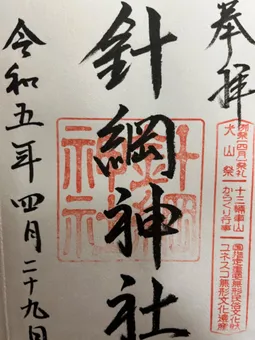 奉拝
犬山祭
十三輛車山
からくり行事
国指定重要無形民俗文化財
ユネスコ無形文化遺産
針綱神社
針綱神社
令和五年四月二十九日